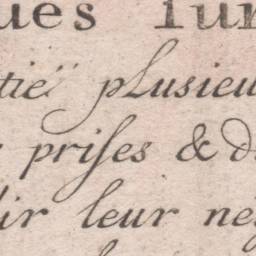 ques sur
tie plusieu
prises & d
lir leur né